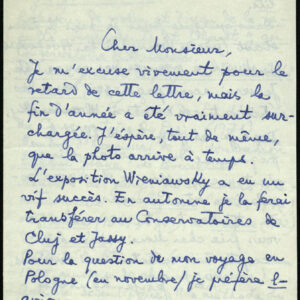 Cher Monsieur,
Je m'excuse vivement pour le
retard de cette lettre, mais la
fin d'année a été vraiment sur-
chargée. J'éspère, tout de même,
que la photo arrive à temps.
L'exposition Wieniawsky a eu un
vif succès. En automne je la ferai
transférer au Conservatoires de
Cluj et Jassy.
Pour la question de mon voyage en
Pologne (en novembre) je préfère